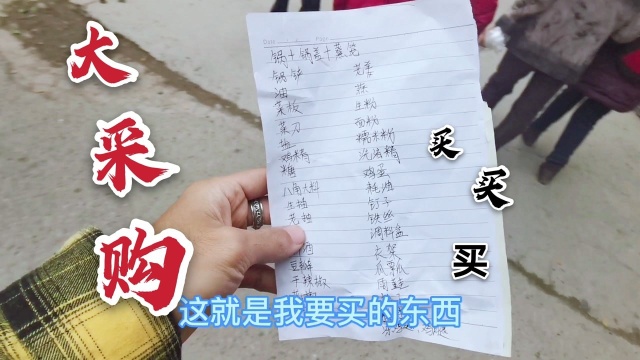 大采购
锅+锅盖+蒸笼
锅铲
油
菜板
菜刀
鸡精
糖
八角大料
生抽
老抽
豆瓣
干辣椒
芡粉
生粉
面粉
糯米粉
洗洁精
鸡蛋
耗油
钉子
铁丝
调料盒
衣架
买
买
买
这就是我要买的东西